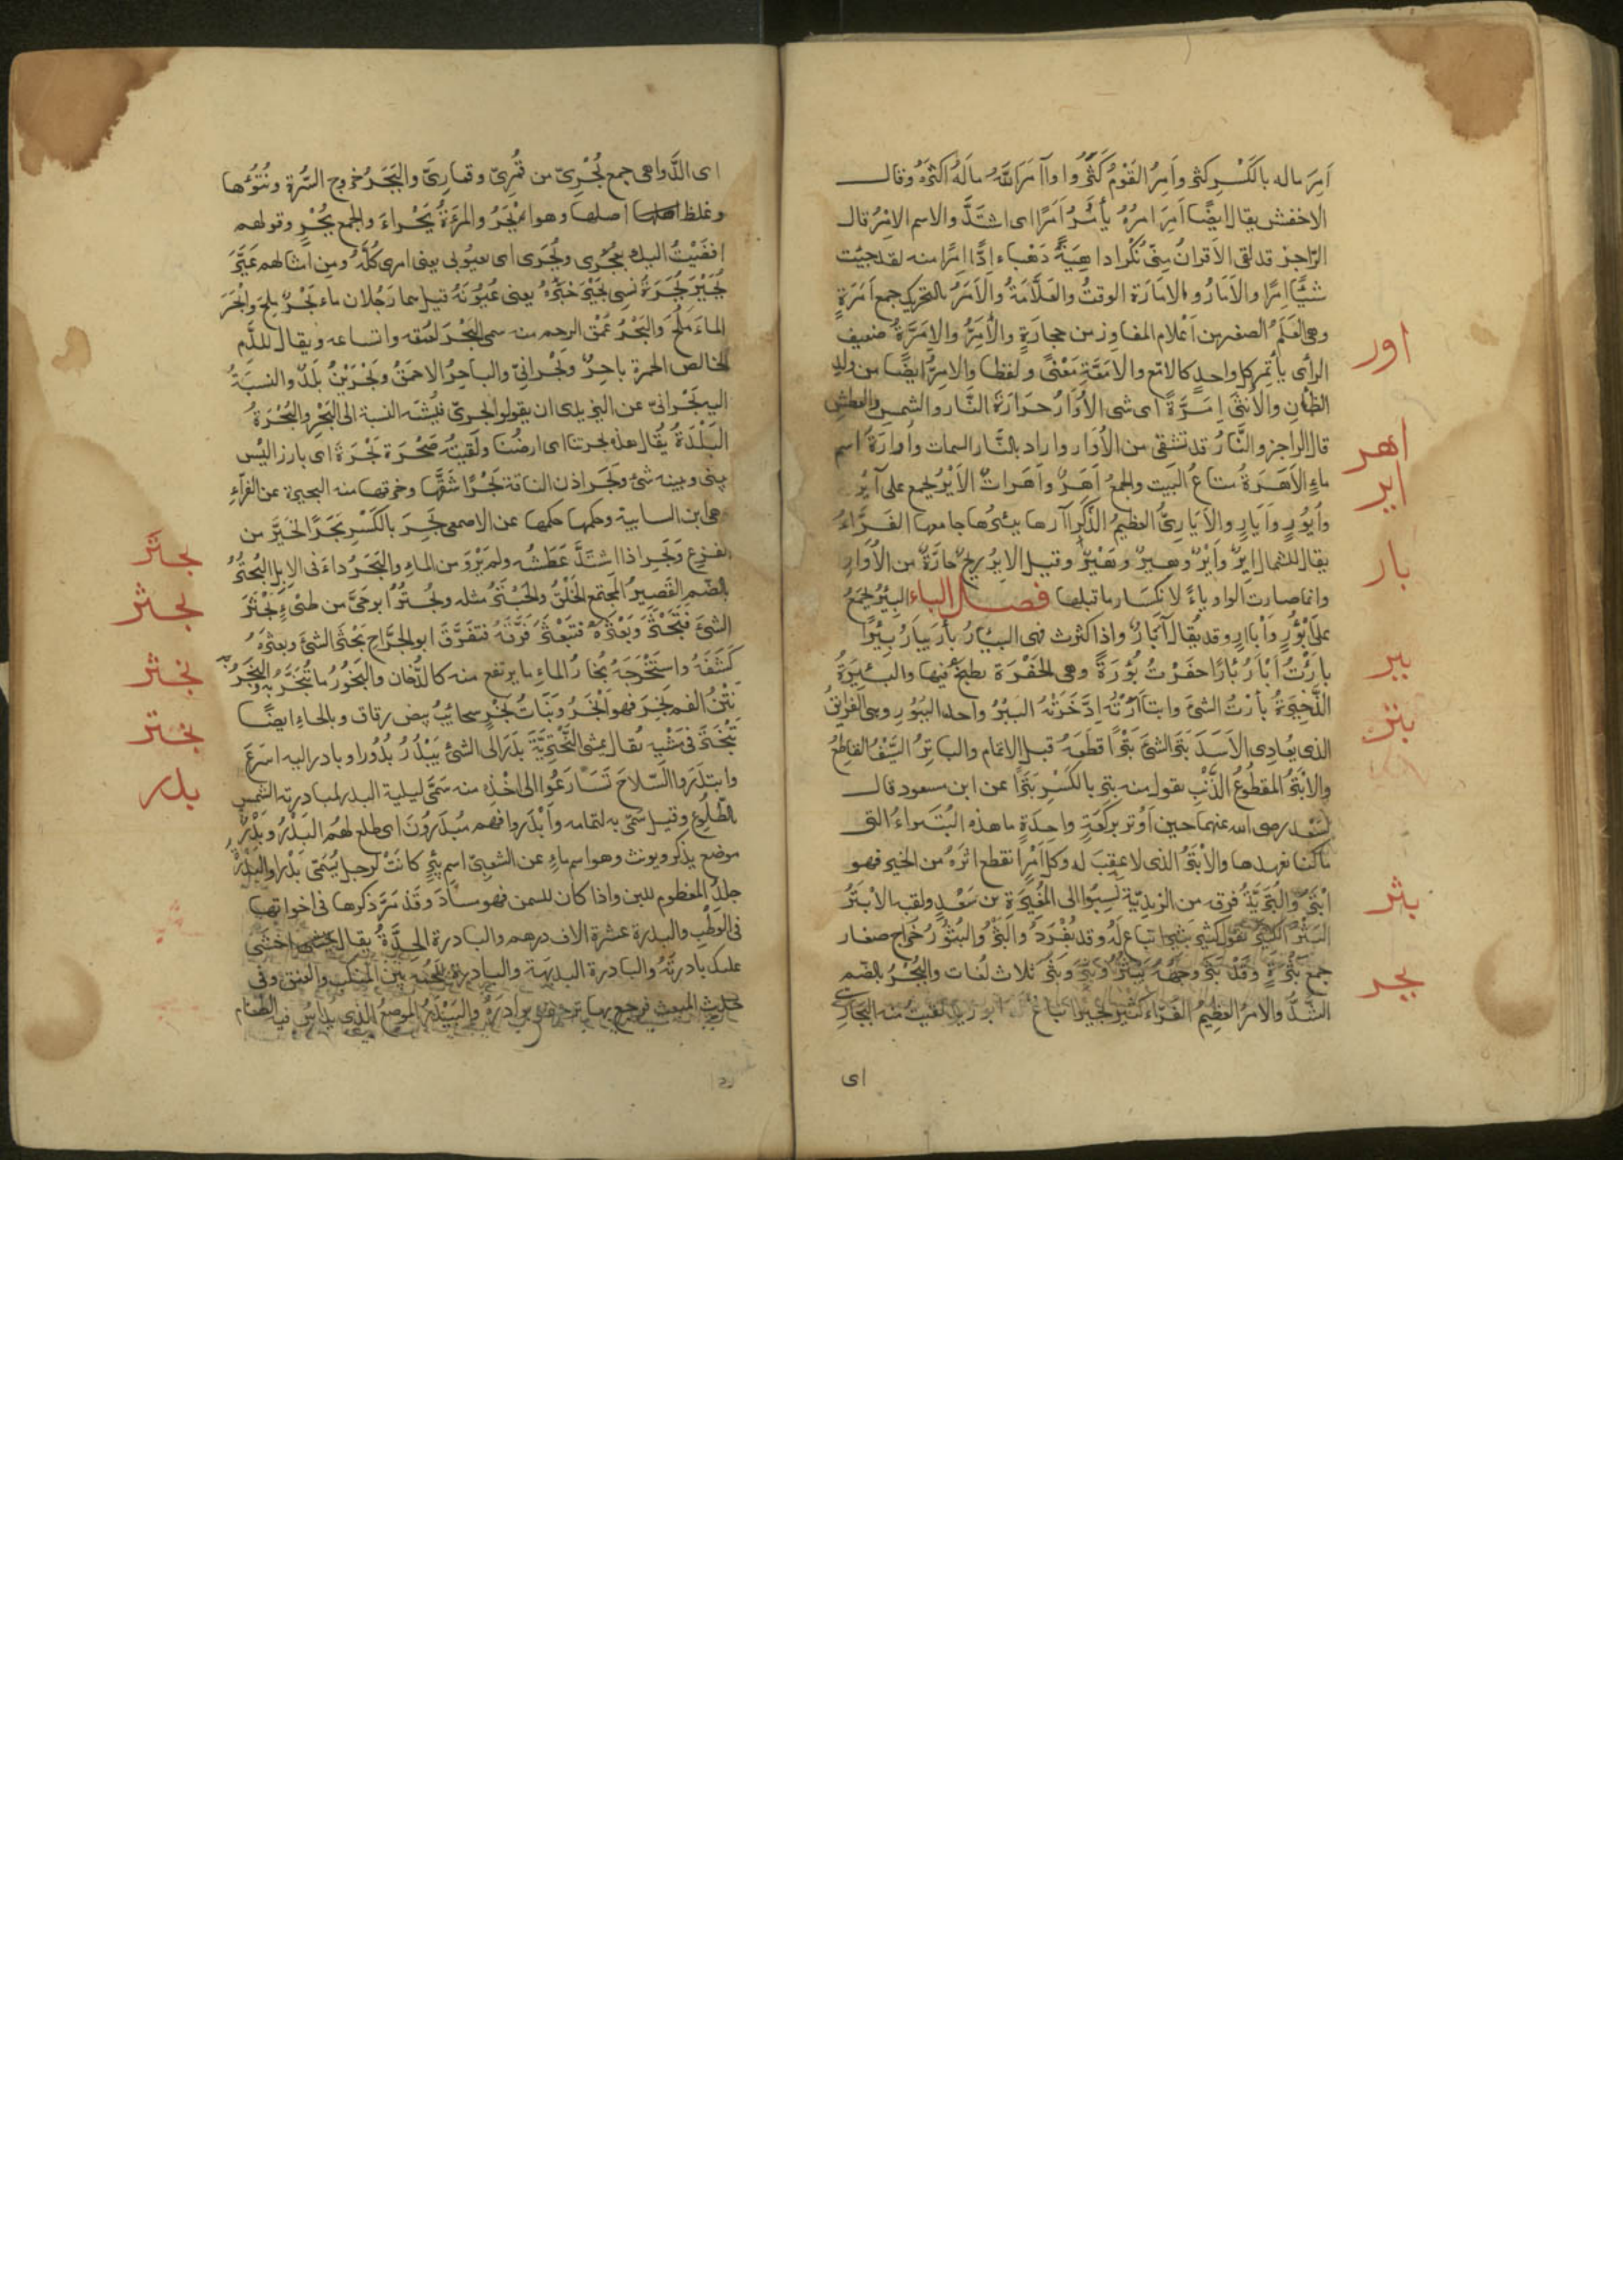 اَمِرَ ماله بالكَسْرِ كثر وأَمِرَ القَوْمُ كَثُرُوا وآمَرَ اللَّهُ مالَهُ اكثرَهُ وقال
الاخفش يقال ايضًا اَمِرَ امرُهُ يأْمَرُ اَمَرًا اى اشتَدَّ والاسم الامْرُ قال
الرّاجز قد لقى الاقرانُ مِنّى نُكْرا داهِيَةً دَهْياء ادًّا اِمْرًا منه لقد جئت
شيئًا اِمرًا والاَمَارُ والامَارَة الوقتُ والعَلَامَةُ والاَمَرُ بالتحريك جمع اَمَرَةٍ
وهى العَلَمُ الصغير من اَعْلام المفاوِز من حجارَةٍ والاِمَّرُ والاِمَّرَةُ ضعيف
الرأى يأتمر كل واحدٍ كالامّع والامَّعَةِ مَعْنىً ولفظا والامّرُ ايضًا من ولد
الضأن والأنثى اِمَّرَةً اى شى الأُوَارُ حرَارَةُ النَّار والشمس والعطش
اور
قال الراجز والنَّارُ قد تشفى من الأُوَار واراد بالنَّار السمات واُوارَةُ اسم
ماءٍ الاَهَرَةُ متاعُ البَيت والجمعُ اَهَرٌ واَهَرَاتٌ الاَيْرُ يجمع على آيُر
اهر
اير
وأُيُورٍ وآيَارٍ والاُيَارِىُّ العظيمُ الذَّكَر آرها يئيرُها جامعها الفَرَّاءُ
يقال للشمال اِيرٌ واَيْرٌ وهِيرٌ وهَيْرٌ وقيل الايرُ ريحٌ حارَّةٌ من الاُوَارِ
وانما صارت الواو ياءً لانكسَار ما قبلها فصل الباء البِئْرُ يجمَعُ
بار
على أَبْؤُرٍ وأَبْآرٍ وقد يُقال آبَارٌ واذا كثرت فهى البِئَارُ بأرَ يبأَرُ بِئْرًا
بأَرْتُ اَبْأَرُ بأرًا حفَرْتُ بُؤْرَةً وهى الحُفْرَة يطبخ فيها والبَئِيرَةُ
ببر
الذَّخِيرَةُ بأرتُ الشىَ وابتأَرْتُه ادَّخَرْتُهُ الببْرُ واحد الببُورِ وهى الفرانقُ
الذى يعادى الاَسَدَ بَتَرَ الشىَ بَتْرًا قطَعَهُ قبل الاتمام والباتِرُ السَّيْفُ القاطِعُ
بتر
والاَبْتَرُ المقطُوعُ الذَّنَبِ تقول منه بَتِرَ بالكَسْرِ بَتَرًا عن ابن مسعود قال
لسَعْد رضى الله عنهما حين اَوْتر برَكعَةٍ واحِدَةٍ ما هذه البُتَيراءُ التى
ما كنا نعهدها والاَبْتَرُ الذى لا عقِبَ له وكل اَمْرٍ انقطع اثَرَهُ من الخير فهو
اَبْتَرُ والبُتَرِيَّةُ فرقه من الزيديّة نُسِبُوا الى المُغِيرَةِ بن سَعْدٍ ولقبه الاَبْتَرُ
البَثْرُ الكثِيرُ تقول كثِيرٌ بَثِيرٌ اتباع لهُ وقد يُفْرَدُ والبَثْرُ والبثُورُ خُرَاج صغار
بثر
جمع بَثْرَةٍ وقَدْ بَثَرَ وجهُهُ يَبْثُرُ وبَثِرَ وبَثُر ثلاث لُغات والبُجْرُ بالضم
بجر
الشَّرُّ والاَمرُ العَظِيمُ الفَرّاءُ كثيرٌ بجيرٌ اتباعٌ ابو زيد لقيت منه البَجَارِى
اى
اى الدَّواهى جمع بُجْرِىّ من قُمْرِىّ وقمارِىّ والبَجَرُ خروج السُّرة ونُتُوُّها
وغلظ اصلها وهو اَبْجَرُ والمَرْءَةُ بَجْراءُ والجمع بُجْرٍ وقولهم
افضَيْتُ اليك بعُجَرى وبُجَرى اى بعيُوبى يعنى امرى كُلّهُ ومن امثالهم عَيَّرَ
بُجَيْرٌ بُجَرَةً نسِى بُجَيْرٌ خبَرَهُ يعنى عُيُوبَهُ قيل هما رجُلان ماء بَحْرٌ ملح واَبْحَرَ
الماءُ مَلُحَ والبَحْرُ عُمْق الرحم منه سمى البَحْرَ لعُمْقه واتساعه ويقال للدَّمِ
الخالص الحمرة باحِرٌ وبَحْرانِىّ والباحِرُ الاحمَقُ وبَحْرَيْنُ بلَدٌ والنسبَةُ
اليه بَحْرانىّ عن اليزيدى ان يقولوا بحرىّ فيُشْبه النسبة الى البَحْرِ والبُحْرَةُ
البَلْدَةُ يُقال هذه بحرتنا اى ارضُنا ولَقيتُه صَحْرَة بَحْرَةَ اى بارز اليْس
بينى وبينه شئ وبَحَر اذن الناقة بَحْرًا شقَّها وخرقها منه البحيرة عن الفرّآءِ
هى ابن السايبة وحكمها حكمها عن الاصمعى بَحِرَ بالكَسْرِ بَحَرًا تحَيَّر من
الفزع وبَحِر اذا اشتَدَّ عَطَشُه ولم يَرْوَ من الماء والبَحَرُ داء فى الابل البُحْتُرُ
بحتر
بالضّم القَصِيرُ المجتمع الخَلْقِ والحَبْتَرُ مثله وبُحْتُرُ ابو حَىّ من طىّءٍ بَحْثَرَ
بحثر
الشىَ فتَبَحْثَرَ وبَعْثَرَهُ فتبَعْثَرَ فرَّقَهُ فتفَرَّقَ ابو الجرَّاح بَحْثَرَ الشئَ وبعثرَهُ
كشَفَهُ واستَخْرَجَهُ بُخارُ الماءِ ما يرتفع منه كالدُّخان والبَخُورُ ما تُبُخِّرُ به والبَخَرُ
بخر
نَتْنُ الفم بَخِرَ فهو اَبْخَرُ وبَنَاتُ بَخْرٍ سحايبُ بيض رقاق وبالحاءِ ايضًا
تبَخْتَرَ فى مَشْيِهِ يُقال يمشى البَخْتَرِيَّةَ بَدَرَ الى الشئ يَبْدُرُ بُدُورًا وبادر اليه اسْرَعَ
بختر
بدر
وابتدَرَوا السّلاحَ تَسَارَعُوا الى اخْذِه منه سَمَّى ليلة البدر لمبادرته الشمس
بالطّلوع وقيل سُمّى به لتمامه واَبْدَروا فهم مُبْدِرُونَ اى طلع لهُم البَدْرُ وبَدْرٌ
موضع يذكر ويونث وهو اسم ماءٍ عن الشعبىّ اسم بِئْرٍ كانَتْ لرجل يُسَمّى بَدْرًا والبَدْرَةُ
جلدُ المفطوم للبن واذا كان للسمن فهو مسأدٌ وقَدْ مَرَّ ذكرها فى اخواتها
فى الوَطْبِ والبدرة عشرة الاف درهم والبادرة الحِدَّةُ يقال اخشى
عليك بادرتَهُ والبادرة البديهَة والبادرة اللحْمَة بين المنكب والعنق وفى
حديث المبعث فرجع بها ترجف بوادرَهُ والبَيْدَرُ الموضِعُ الذى يداسُ فيه الطعَام